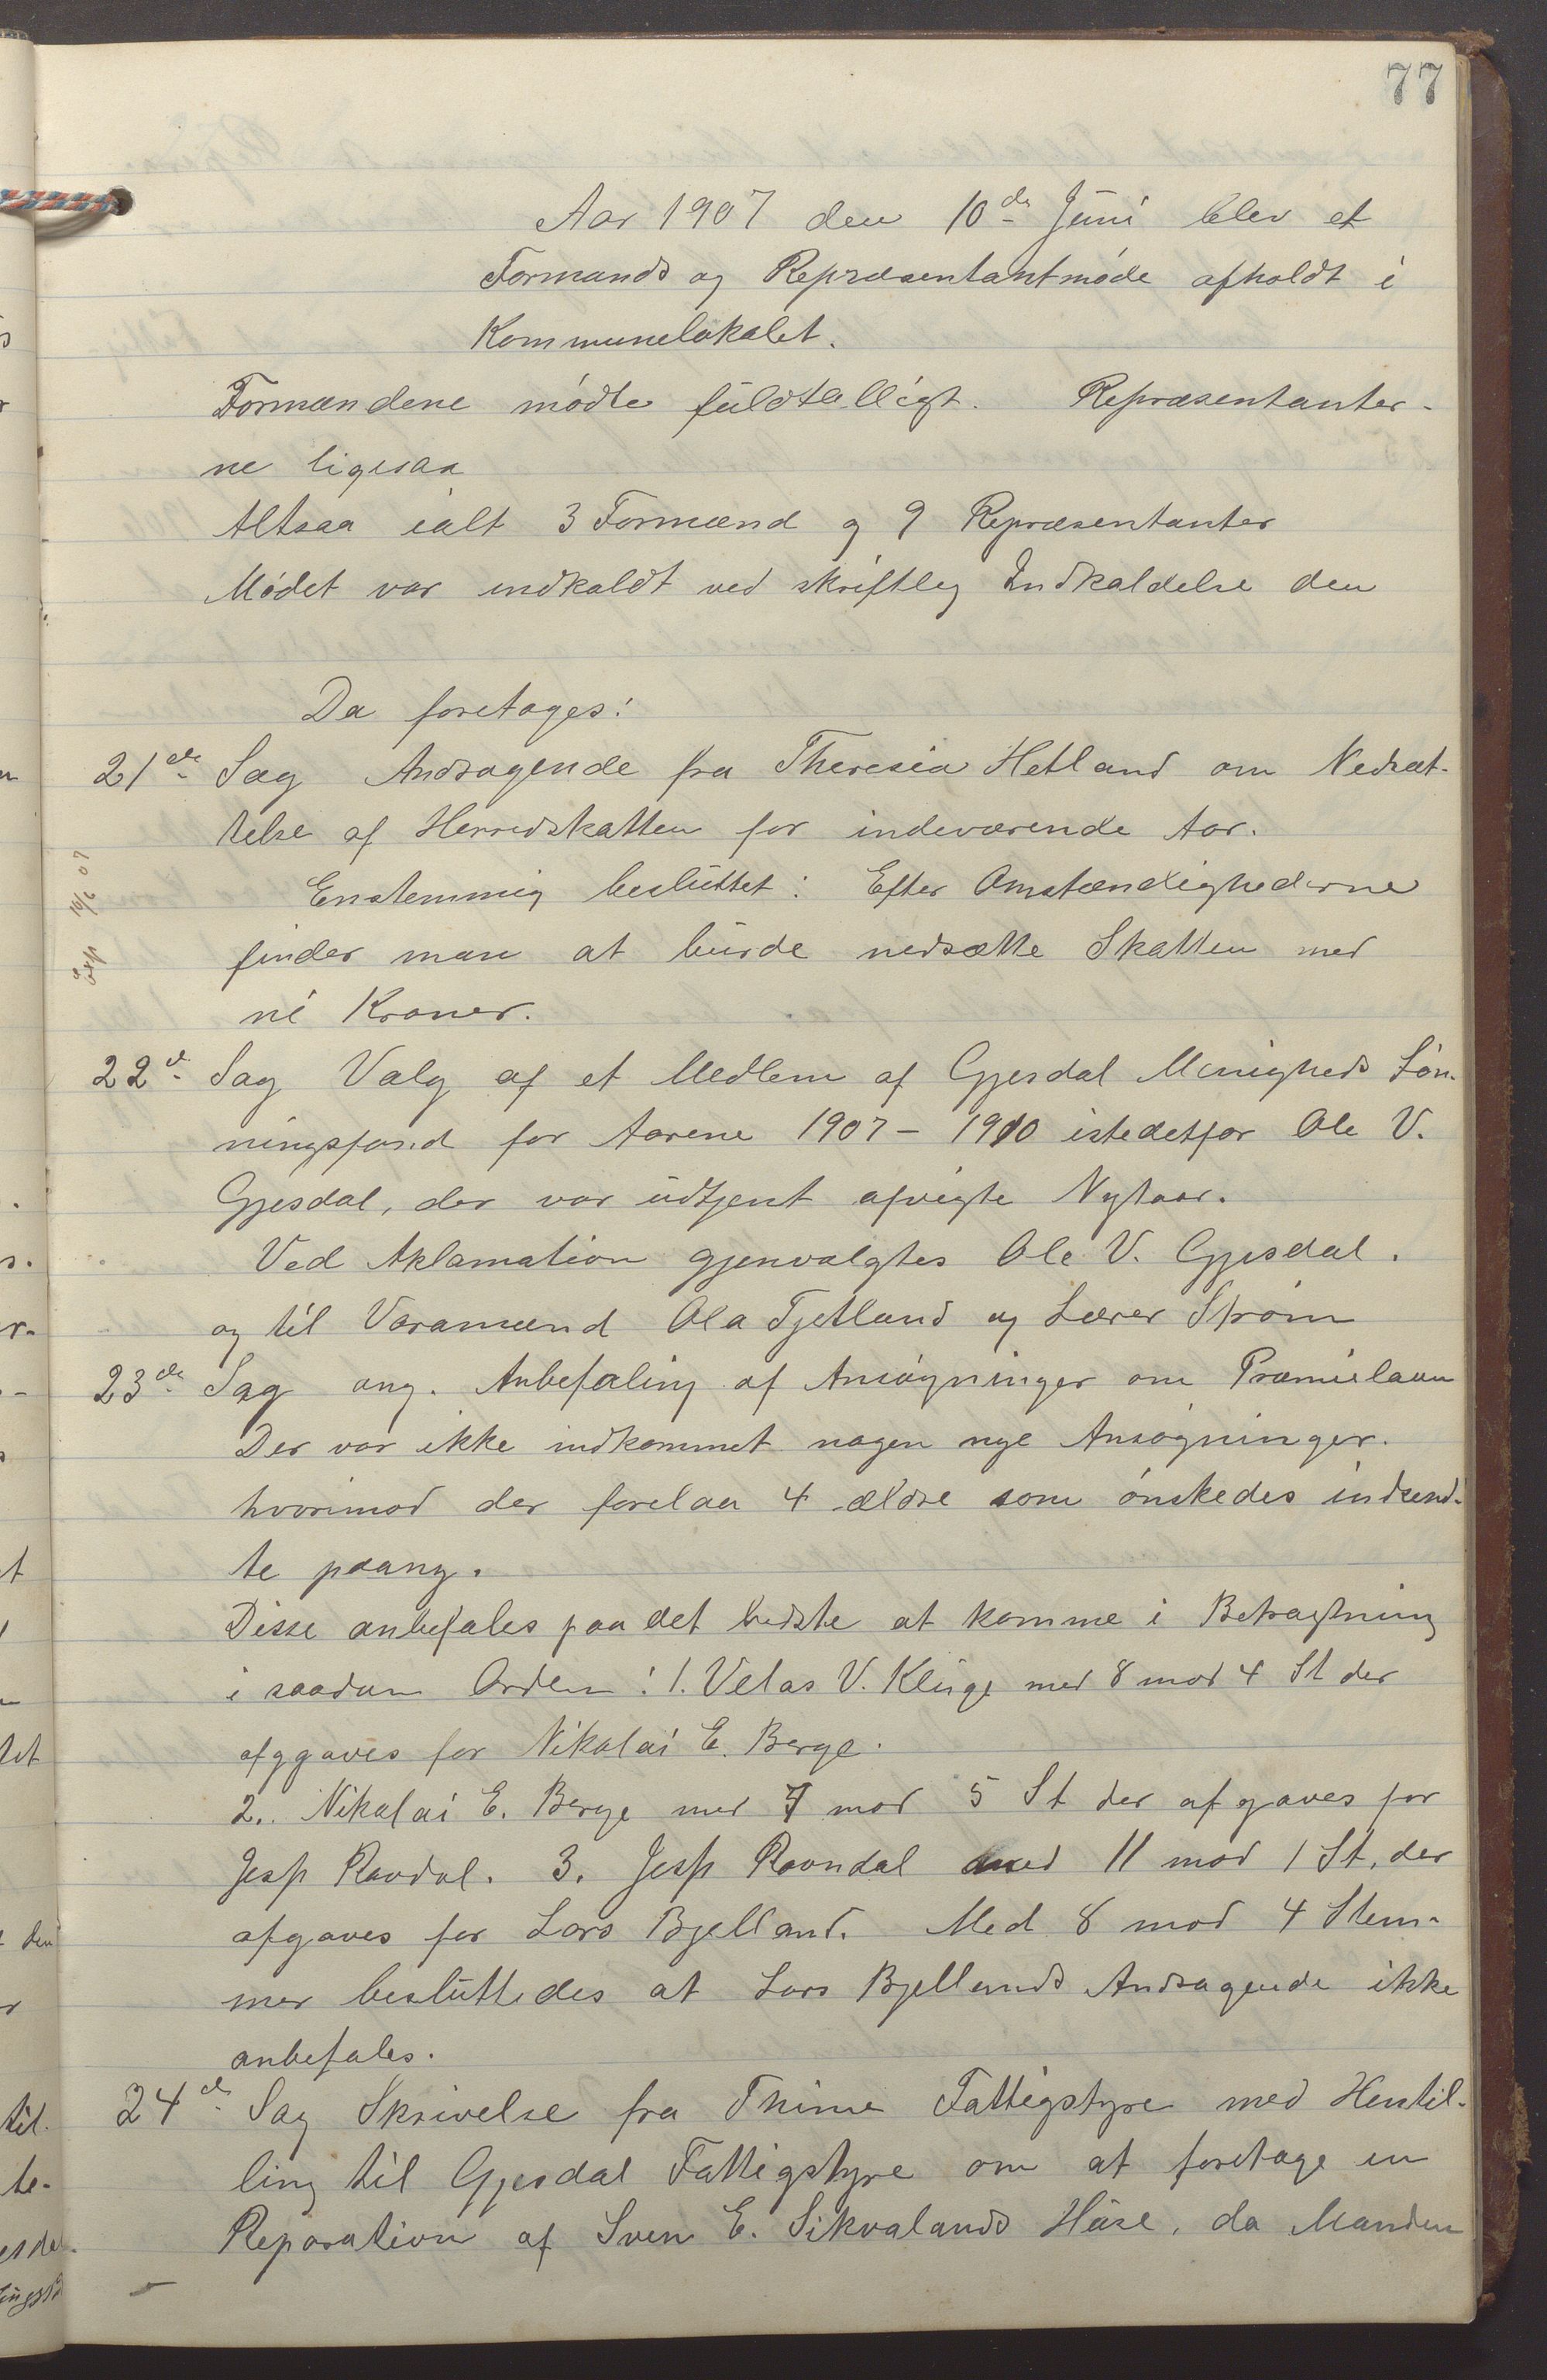 77
Aar 1907 den 10de Juni blev et
Formands og Repræsentantmøde afholdt i
Kommunelokalet.
Formændene mødte fuldtalligt. Repræsentanter-
ne ligesaa
Altsaa ialt 3 Formænd og 9 Repræsentanter
Mødet var indkaldt ved skriftleg Indkaldelse den
Da foretages:
21de Sag Andragende fra Theresia Hetland om Nedsæt-
telse af Herredskatten for indeværende Aar.
Exp 10/6 07
Enstemmig besluttet: Efter Omstændighederne
finder man at burde nedsætte Skatten med
ni Kroner.
22d Sag Valg af et Medlem af Gjesdal Menigheds Løn-
ningsfond for Aarene 1907 - 1910 istedetfor Ole V.
Gjesdal, der var udtjent afvigte Nytaar.
Ved Aklamation gjenvalgtes Ole V. Gjesdal.
og til Varamænd Ola Tjetland og Lærer Strøm
23de Sag ang. Anbefaling af Ansøgninger om Præmielaan
Der var ikke indkommet nogen nye Ansøgninger.
hvorimod der forelaa 4 ældre som ønskedes indsend-
te paany.
Disse anbefales paa det bedste at komme i Betragtning
i saadan Orden: 1. Velas V. Kluge med 8 mod 4 St der
afggaves for Nikolai E. Berge.
2. Nikolai E. Berge med 7 mod 5 St der afgaves for
Jesp Ravdal. 3. Jesp Ravndal med 11 mod 1 St, der
afgaves for Lars Bjelland. Med 8 mod 4 Stem-
mer besluttedes at Lars Bjellands Andragende ikke
anbefales.
24de Sag Skrivelse fra Thime Fattigstyre med Henstil-
ling til Gjesdal Fattigstyre om at foretage en
Reparation af Sven E. Sikvalands Huse, da Manden